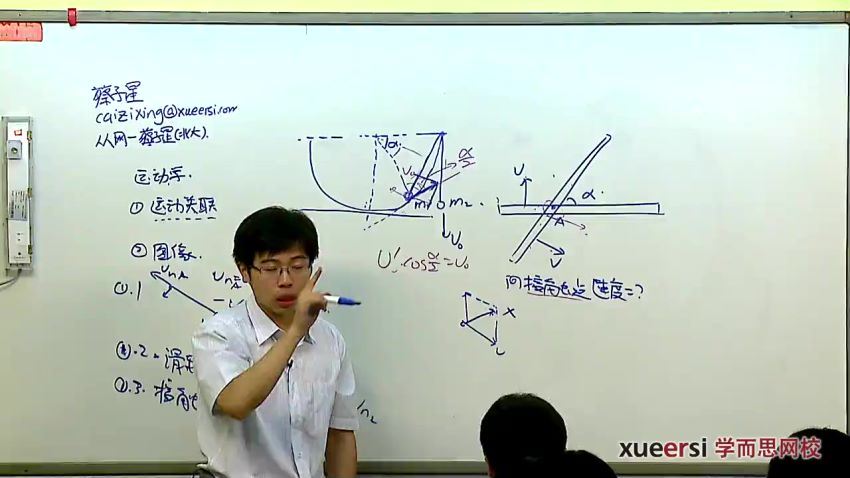 蔡子星
caizixing@xueersi.com
人人网-蔡子星(北大).
运动学.
① 运动关联
② 图像.
①.1
①.2.
①.3. 接触
α
α/2
m₁
m₂
V₀
U'·cos α/2 = V₀
V
α.
A
V
问接触点速度=?
X
xueersi 学而思网校